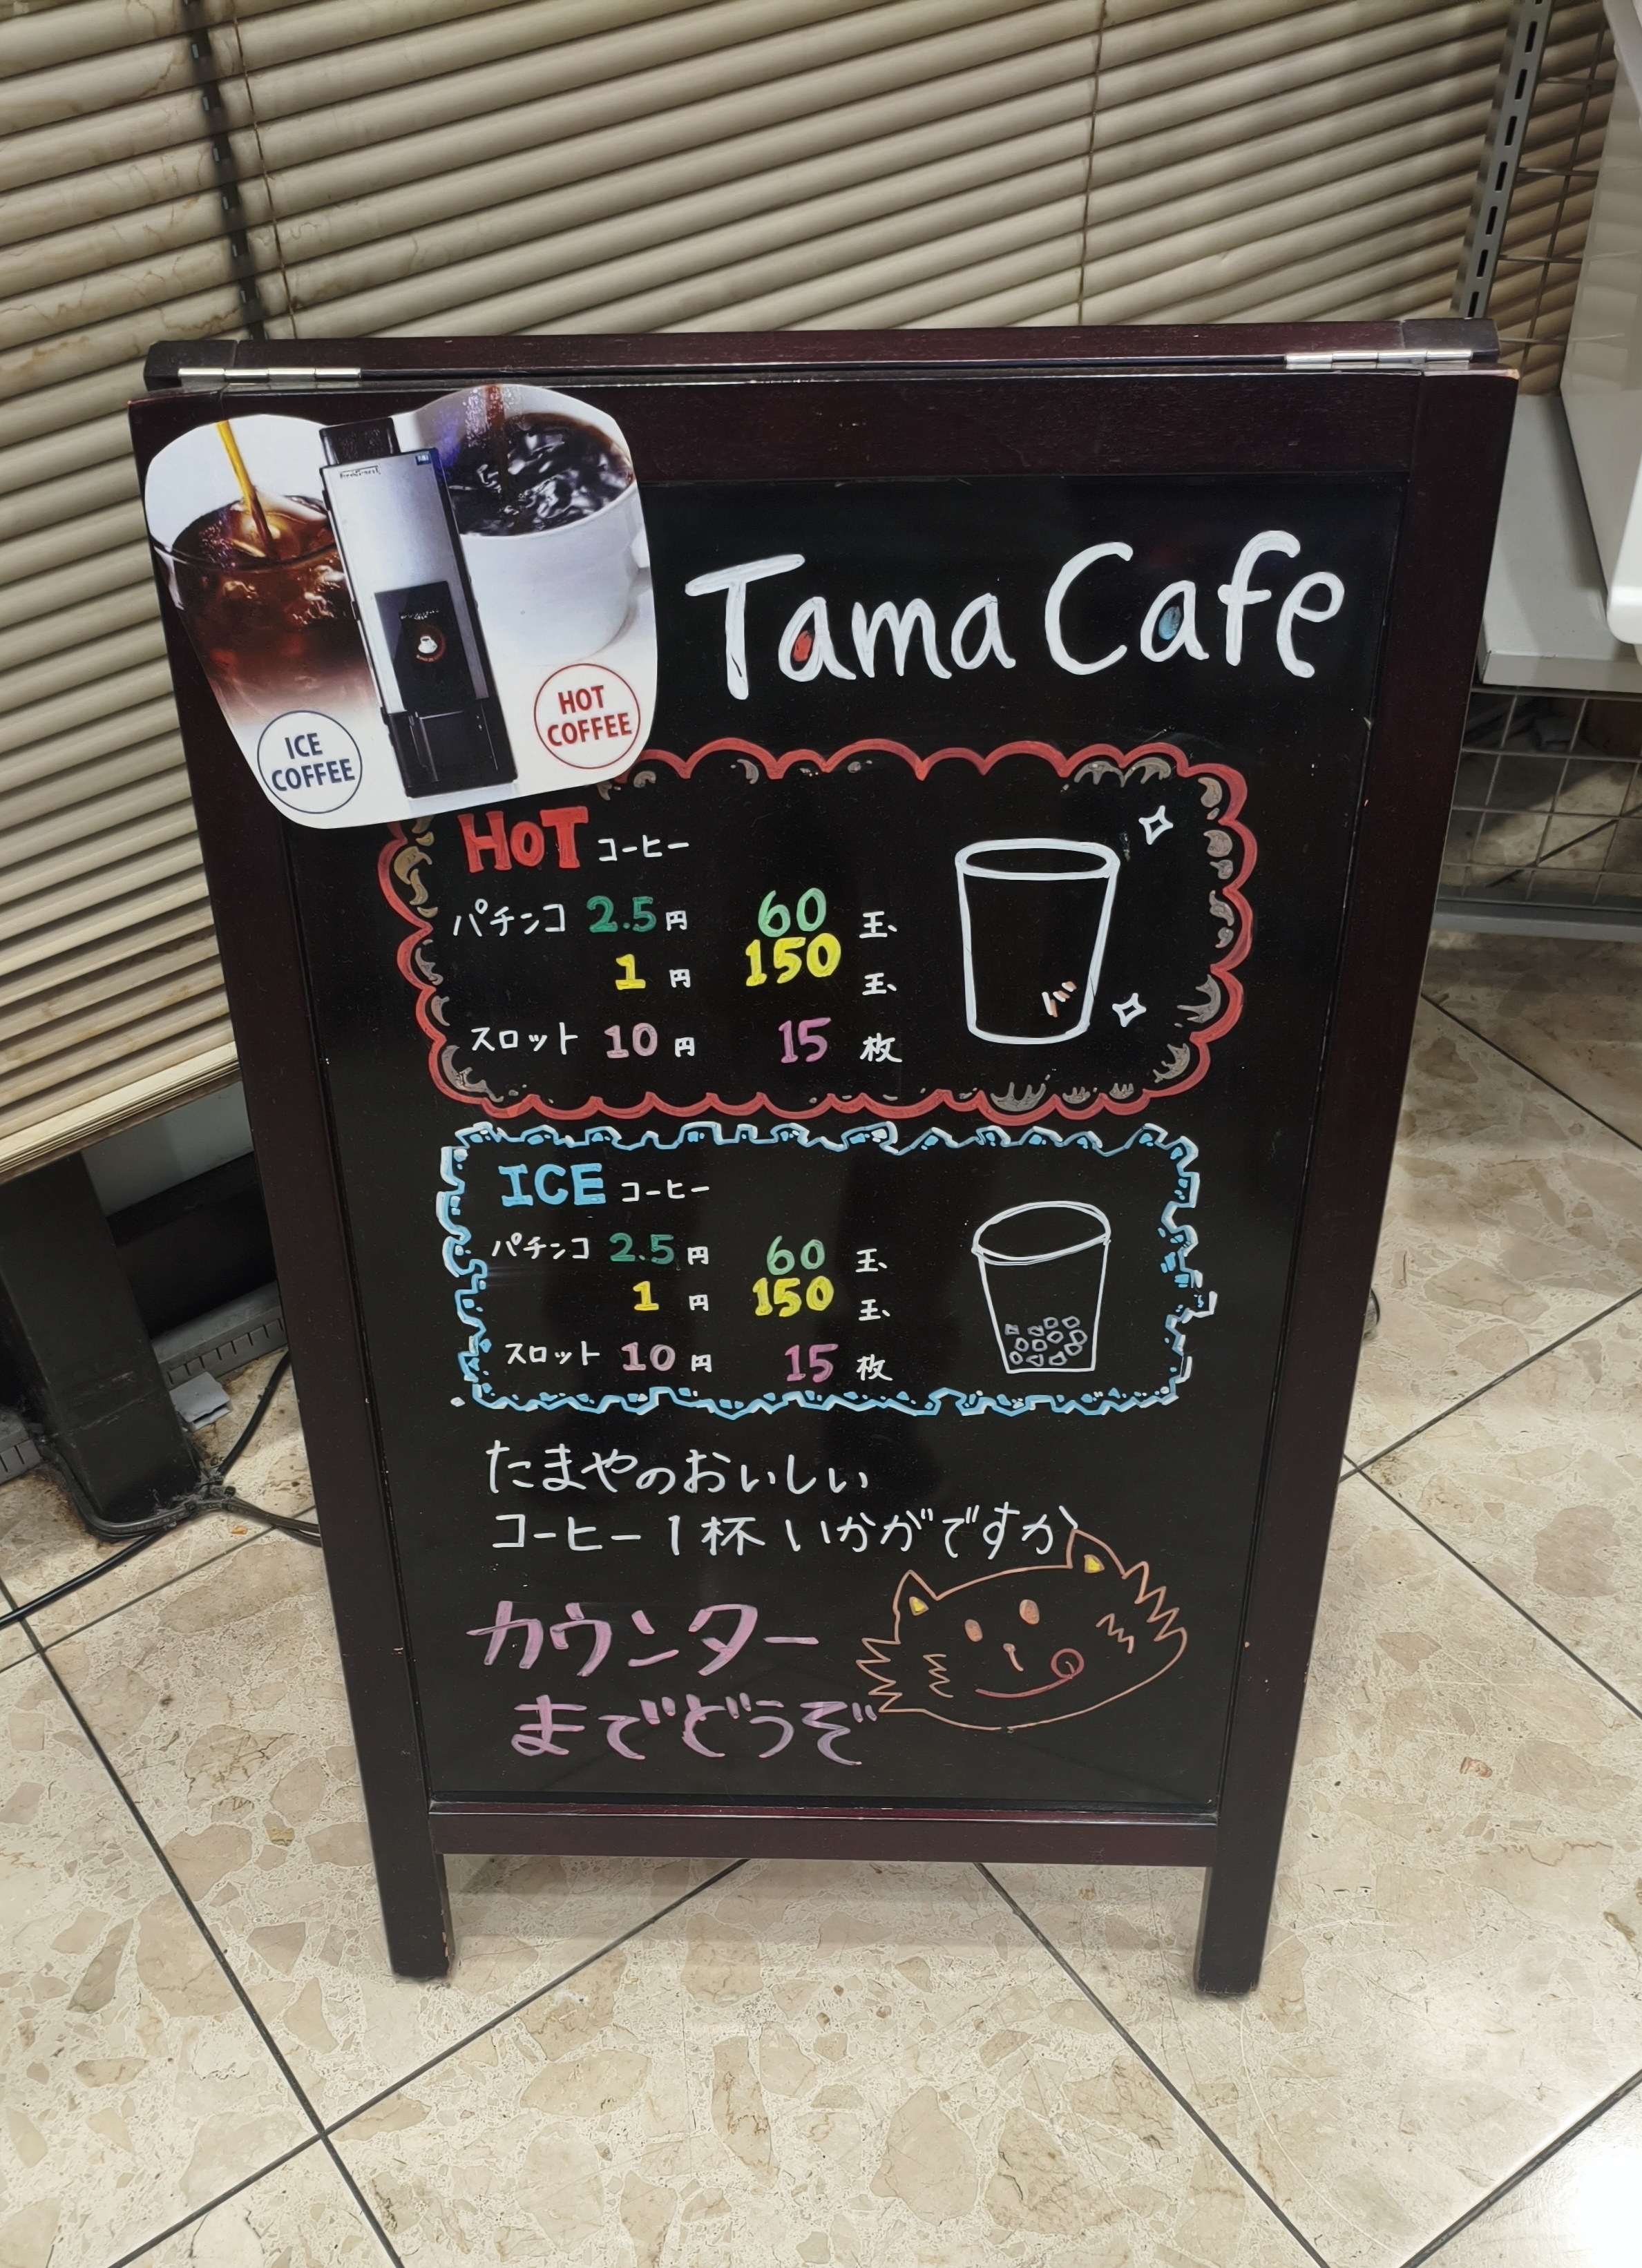 Tama Cafe
ICE
COFFEE
HOT
COFFEE
HOT コーヒー
パチンコ 2.5円 60玉
1円 150玉
スロット 10円 15枚
ICE コーヒー
パチンコ 2.5円 60玉
1円 150玉
スロット 10円 15枚
たまやのおいしい
コーヒー1杯いかがですか
カウンター
までどうぞ